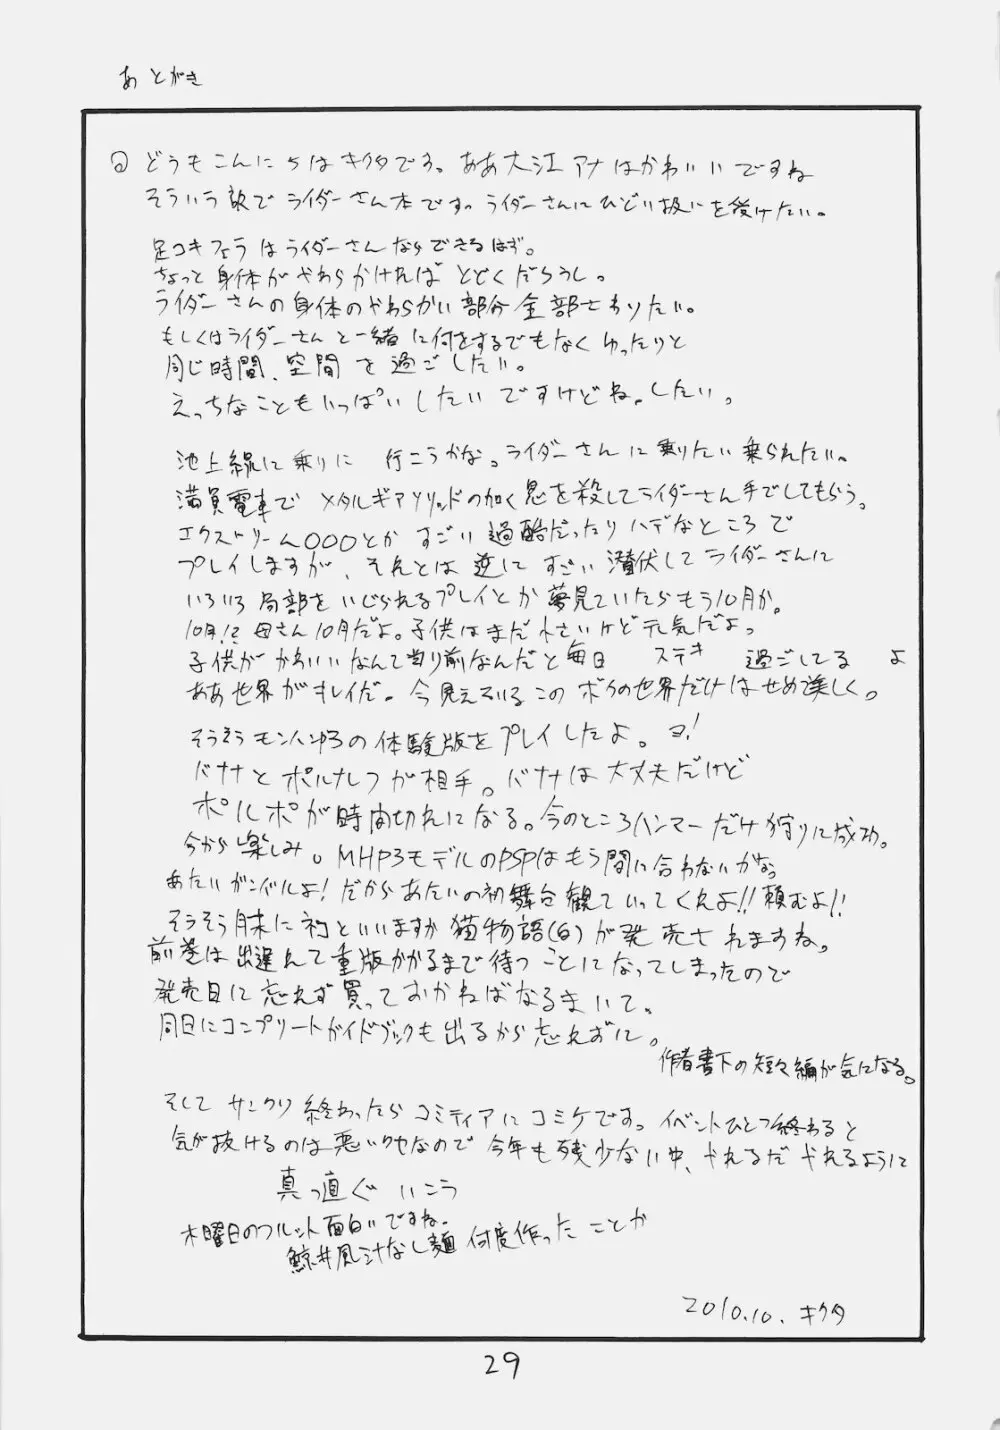 あとがき
どうもこんにちはキクタです。ああ大江アナはかわいいですね
そういう訳でライダーさん本です。ライダーさんにひどい扱いを受けたい。
足コキフェラはライダーさんならできるはず。
ちょっと身体がやわらかければとどくだろうし。
ライダーさんの身体のやわらかい部分全部さわりたい。
もしくはライダーさんと一緒に何をするでもなくゆったりと
同じ時間、空間を過ごしたい。
えっちなこともいっぱいしたいですけどね。したい。
池上線に乗りに 行こうかな。ライダーさんに乗りたい乗られたい。
満員電車でメタルギアソリッドの如く息を殺してライダーさん手でしてもらう。
エクストリーム○○○とかすごい過酷だったりハデなところで
プレイしますが、それとは逆にすごい潜伏してライダーさんに
いろいろ局部をいじられるプレイとか夢見ていたらもう10月か。
10月!?母さん10月だよ。子供はまだ小さいけど元気だよ。
子供がかわいいなんて当り前なんだと毎日 ステキ 過ごしてる よ
ああ世界がキレイだ。今見えているこのボクの世界だけはせめ美しく。
そうそうモンハンの体験版をプレイしたよ。ヨ!
バナナとポルナレフが相手。バナナは大丈夫だけど
ポルポが時間切れになる。今のところハンマーだけ狩りに成功。
今から楽しみ。MHP3モデルのPSPはもう間に合わないかな。
あたいガンバルよ!だからあたいの初舞台観ていってくれよ!!頼むよ!!
そうそう月末に といいますか猫物語(白)が発売されますね。
前巻は出遅れて重版かかるまで待つことになってしまったので
発売日に忘れず買っておかねばなるまいて。
同日にコンプリートガイドブックも出るから忘れずに。
作者書下の短々編が気になる。
そしてサンクリ終わったらコミティアにコミケです。イベントひとつ終わると
気が抜けるのは悪いクセなので今年も残少ない中、ダれるだダれるように
真っ直ぐいこう
木曜日のフルット面白いですね。
鯨井風汁なし麺何度作ったことか
2010.10. キクタ
29